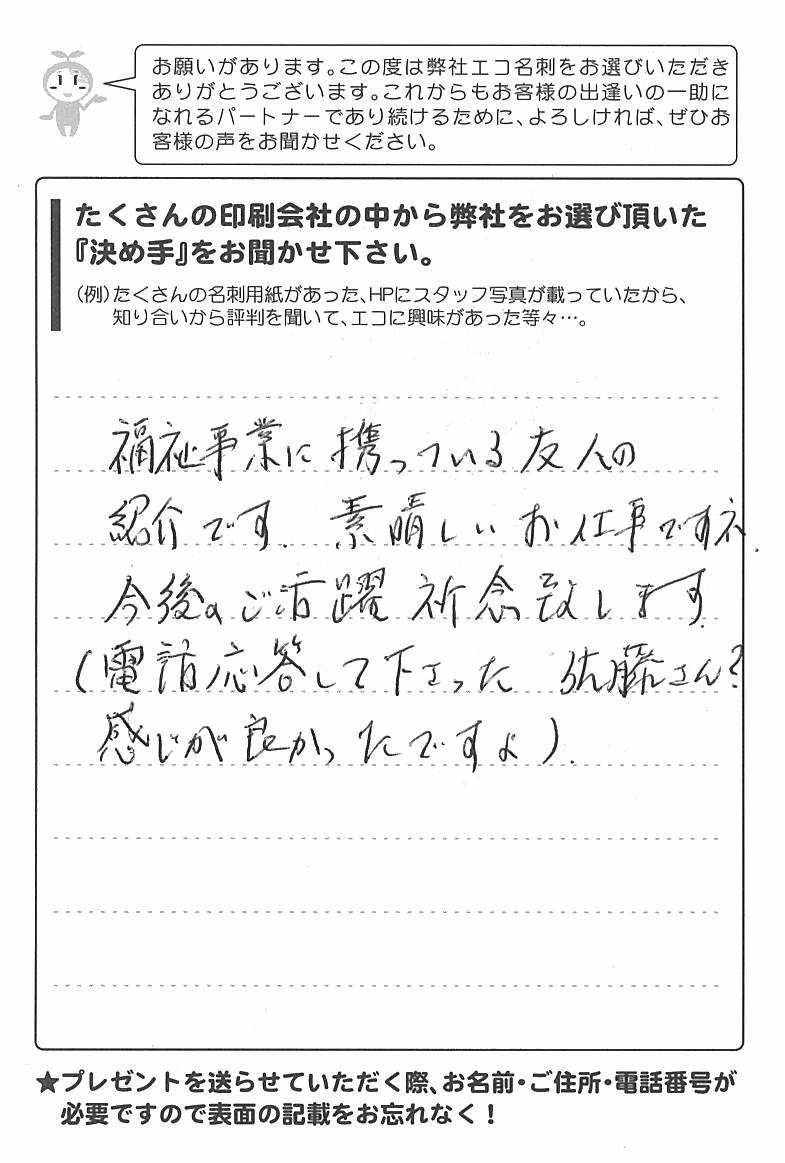 お願いがあります。この度は弊社エコ名刺をお選びいただき
ありがとうございます。これからもお客様の出逢いの一助に
なれるパートナーであり続けるために、よろしければ、ぜひお
客様の声をお聞かせください。
たくさんの印刷会社の中から弊社をお選び頂いた
『決め手』をお聞かせ下さい。
(例)たくさんの名刺用紙があった、HPにスタッフ写真が載っていたから、
知り合いから評判を聞いて、エコに興味があった等々…。
福祉事業に携っている友人の
紹介です。素晴しいお仕事ですネ.
今後のご活躍祈念致します.
(電話応答して下さった 佐藤さん?
感じが良かったですよ).
★プレゼントを送らせていただく際、お名前・ご住所・電話番号が
必要ですので表面の記載をお忘れなく!